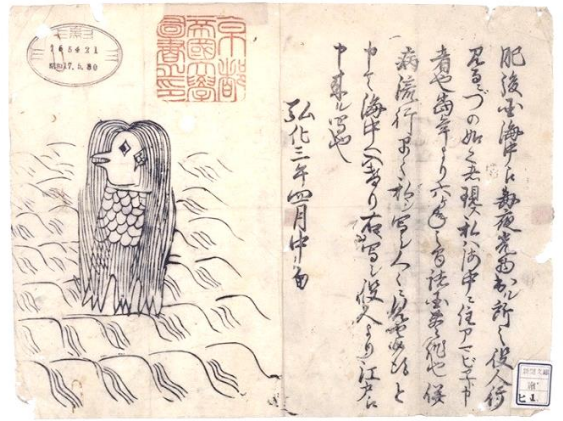 肥後国海中え毎夜光物出ル所之役人行
見るニづの如く者現ス私ハ海中ニ住アマビヱト申
者也当年より六ヶ年之間諸国豊作也併
病流行早々私写シ人々ニ見セ候得と
申て海中へ入けり右写シ役人より江戸え
申来ル写也
弘化三年四月中旬
京都
帝國大學
圖書之印